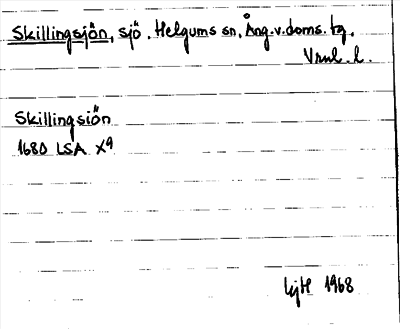 Skillingsjön, sjö. Helgums sn, Ång.v.doms. tg.
Vrnl. l.
Skillingsiön
1680 LSA X9
1968